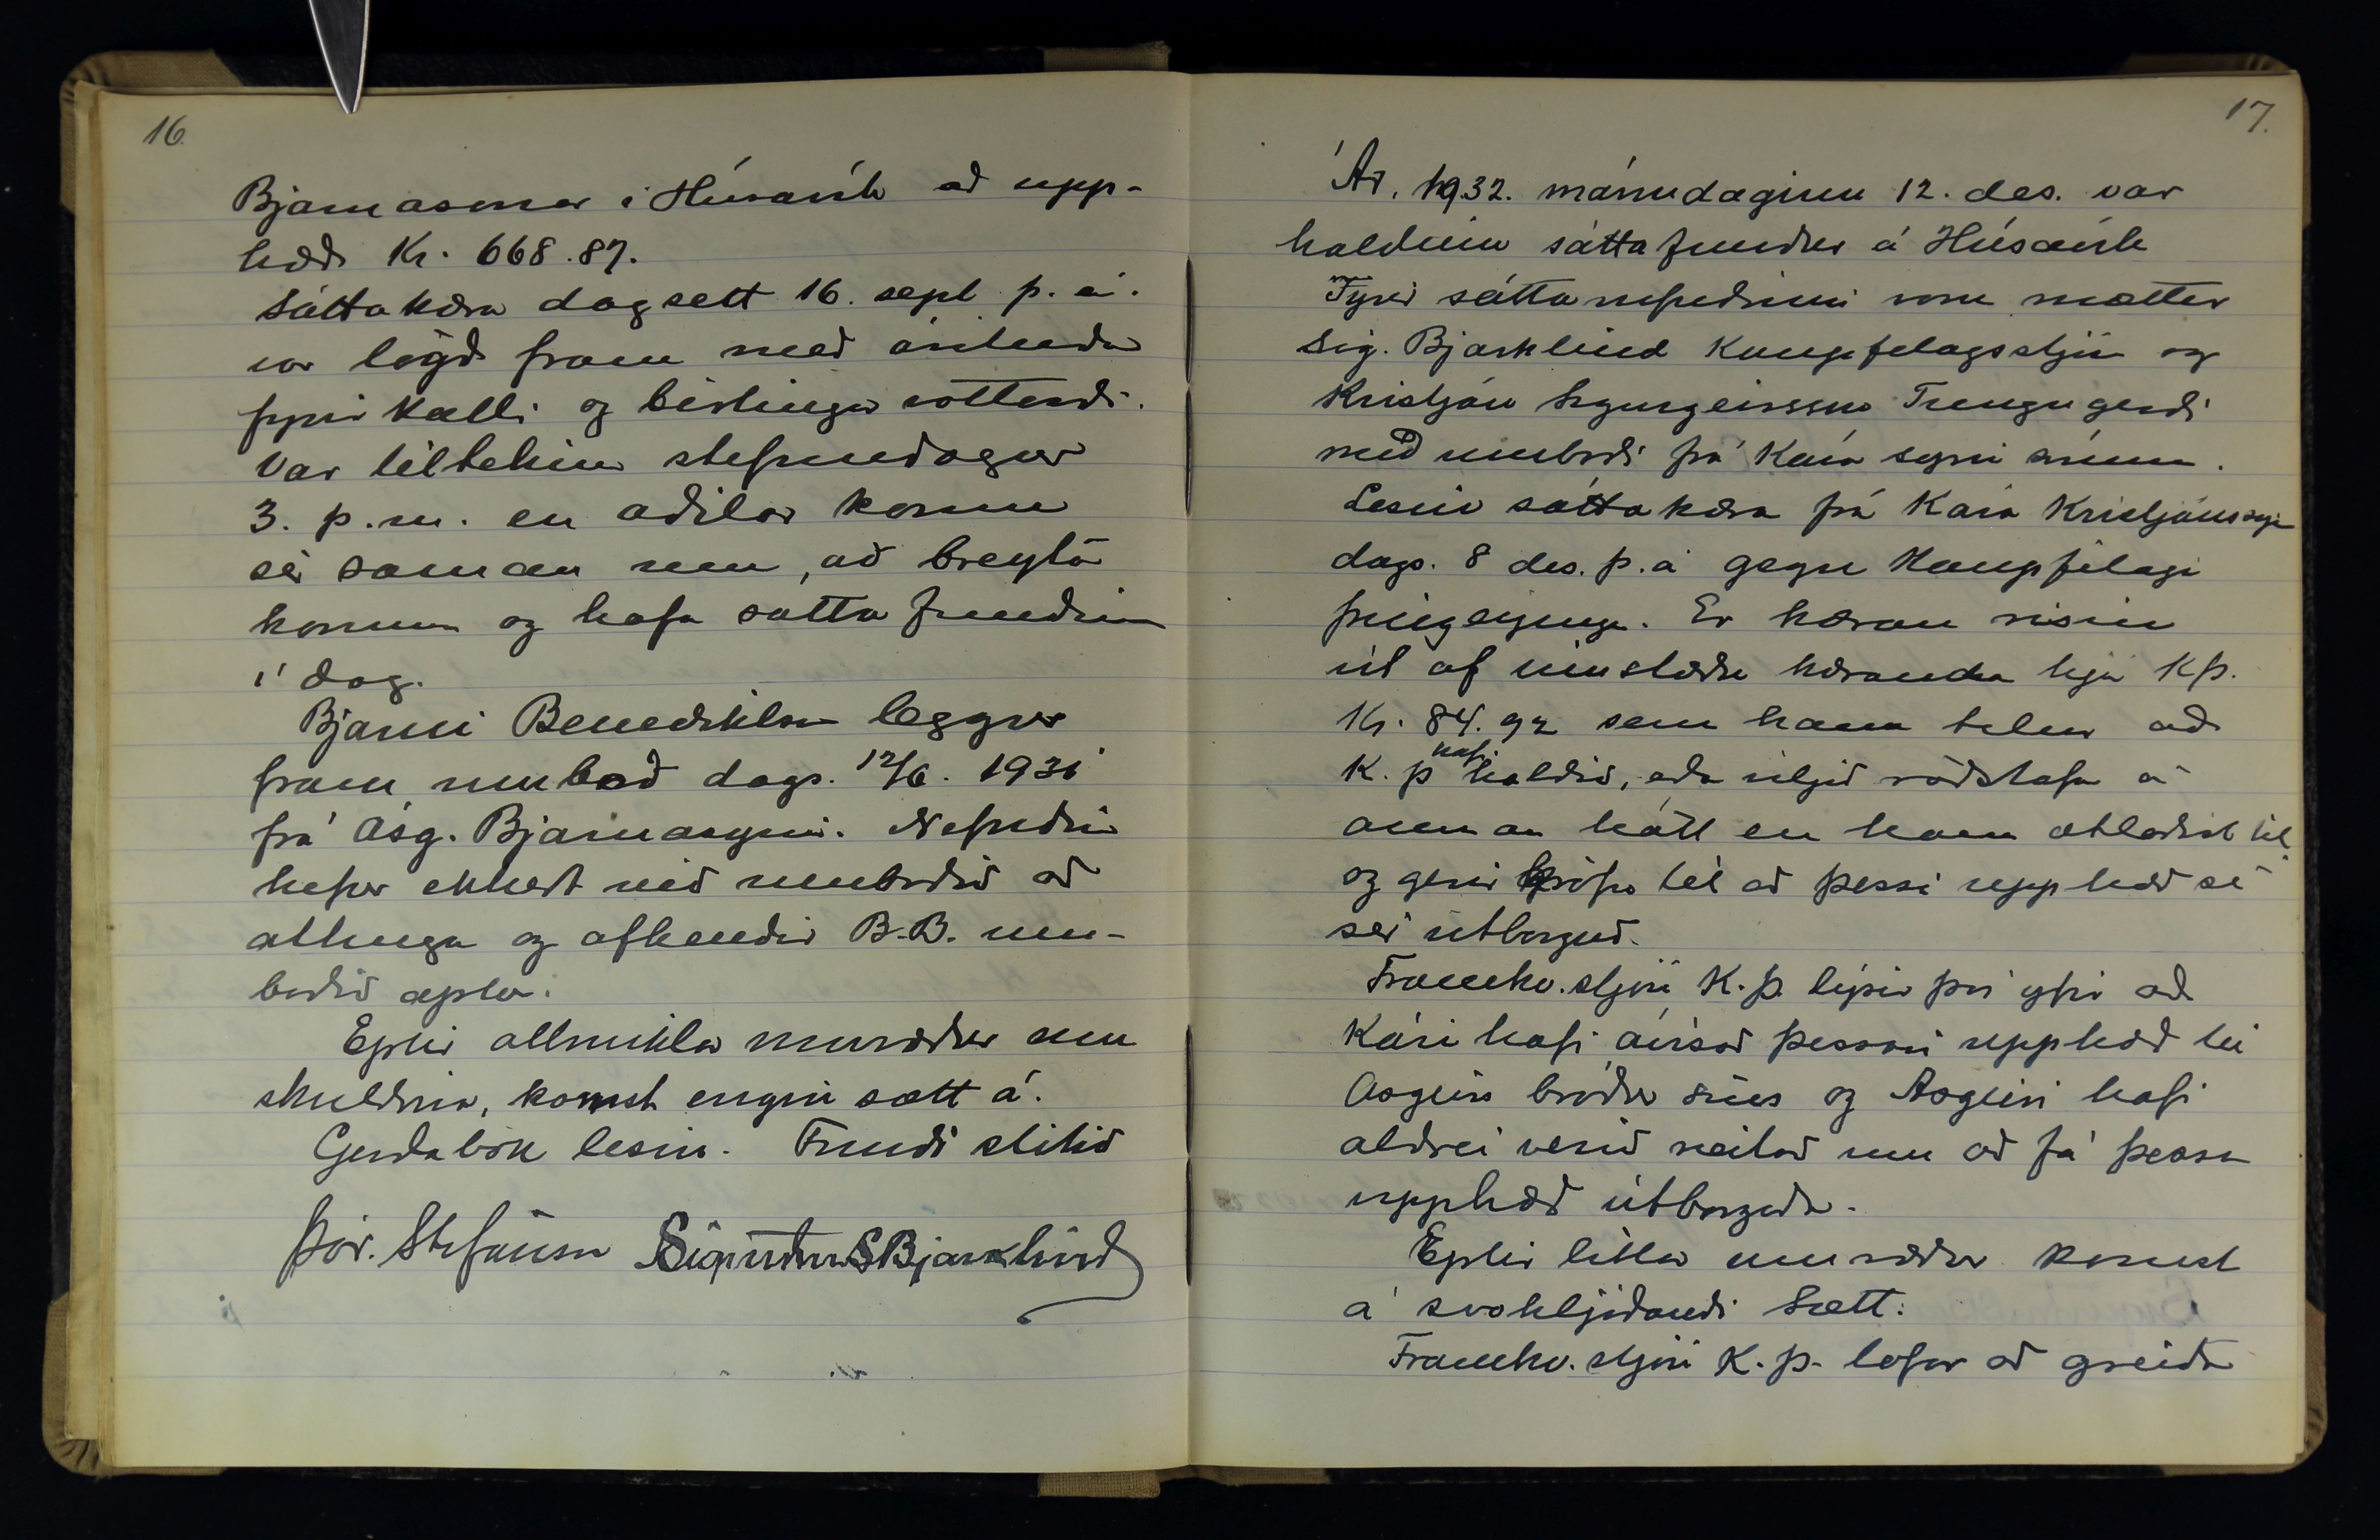 16.
Bjarnasonar í Húsavík að upp-
hæð Kr. 668.87.
Sáttakæra dagsett 16. sept þ. á.
var lögð fram með árituðu
fyrirkalli og birtingarvottorði.
Var tiltekinn stefnudagur
3. þ.m. en aðilar komu
sér saman um, að breyta
honum og hafa sáttafundinn
í dag.
Bjarni Benediktsson leggur
fram umboð dags. 12/6. 1931
frá Ásg. Bjarnasyni. Nefndin
hefur ekkert við umboðið að
athuga og afhendir B.B. um-
boðið aptur.
Eptir allmiklar umræður um
skuldina, komst engin sætt á.
Gerðabók lesin. Fundi slitið
Þór. Stefánsson Sigurður S Bjarklind
17.
Ár. 1932. mánudaginn 12. des. var
haldinn sáttafundur á Húsavík
Fyrir sáttanefndinni voru mættir
Sig. Bjarklind Kaupfelagsstjóri og
Kristján Sigurgeirsson Tungugerði
með umboði frá Kára syni sínum.
Lesin sáttakæra frá Kára Kristjánssyni
dags. 8 des. þ. á gegn Kaupfélagi
Þingeyinga. Er kæran risin
út af innstæðu kæranda hjá KÞ.
Kr. 84.92 sem hann telur að
K. Þ hafi haldið, eða viljið ráðstafa á
annan hátt en hann ætlaðist til
og gerir kröfu til að þessi upphæð sé
sér útborguð.
Framkv. stjóri K. Þ. lýsir því yfir að
Kári hafi ávísað þessari upphæð til
Ásgeirs bróður síns og Ásgeiri hafi
aldrei verið neitað um að fá þessa
upphæð útborgaða.
Eptir litlar umræður komst
á svohljóðandi Sætt:
Framkv. stjóri K. Þ. lofar að greiða